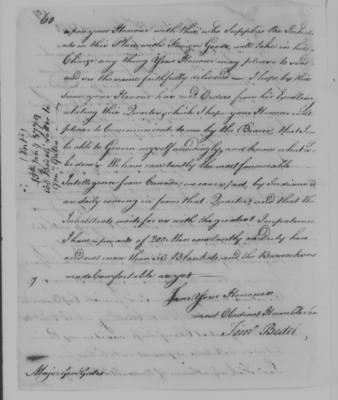 60
upon your Honour with this, who Supplies the
in this Place with Foreign Goods, will take in his
Charge any thing Your Honour may please to
and see the same faithfully delivered — I hope by this
time your Honour has had Orders from his Excellency
this Quarter, which I hope your Honour will
please to Communicate to me by the Bearer, that I may
be able to Govern myself accordingly, and know what to
depend — We have constantly the most favourable
Intelligence from Canada, we can expect, by Indians &c.
are daily coming in from that Quarter, and that the
Inhabitants waite for us with the greatest Impatience
I have upwards of 200 Men constantly on duty here
and not more than 50 Blankets, and the Barracks now
made Comfortable as yet —
I am Your Honours
most Obedient Humble Ser
Timy. Bedel
Major Genl Gates
1779
Letter to
Gates